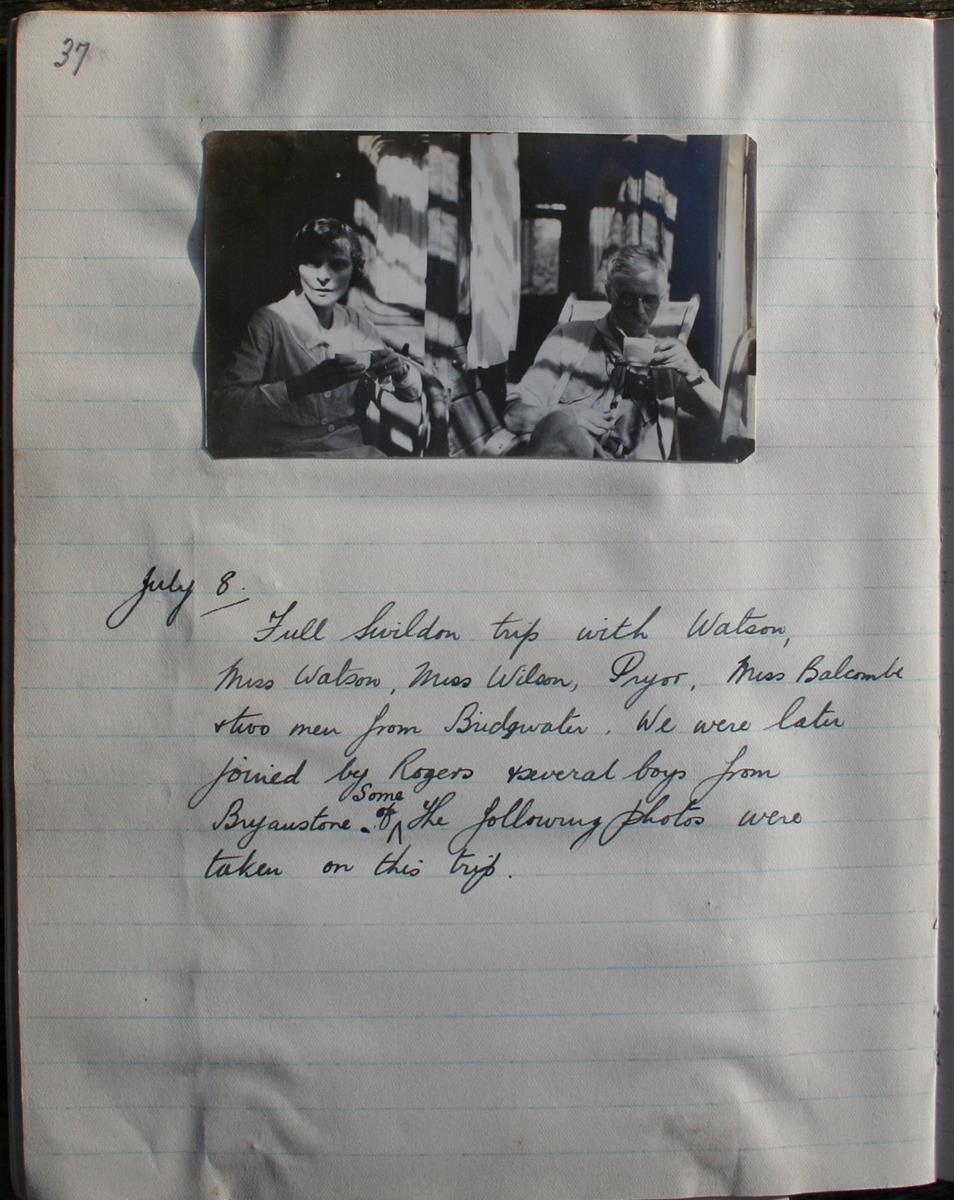 37
July 8.
Full Swildon trip with Watson,
Miss Watson, Miss Wilson, Pryor, Miss Balcombe
& two men from Bridgwater. We were later
joined by Rogers & several boys from
Bryanstone. Some of The following photos were
taken on this trip.